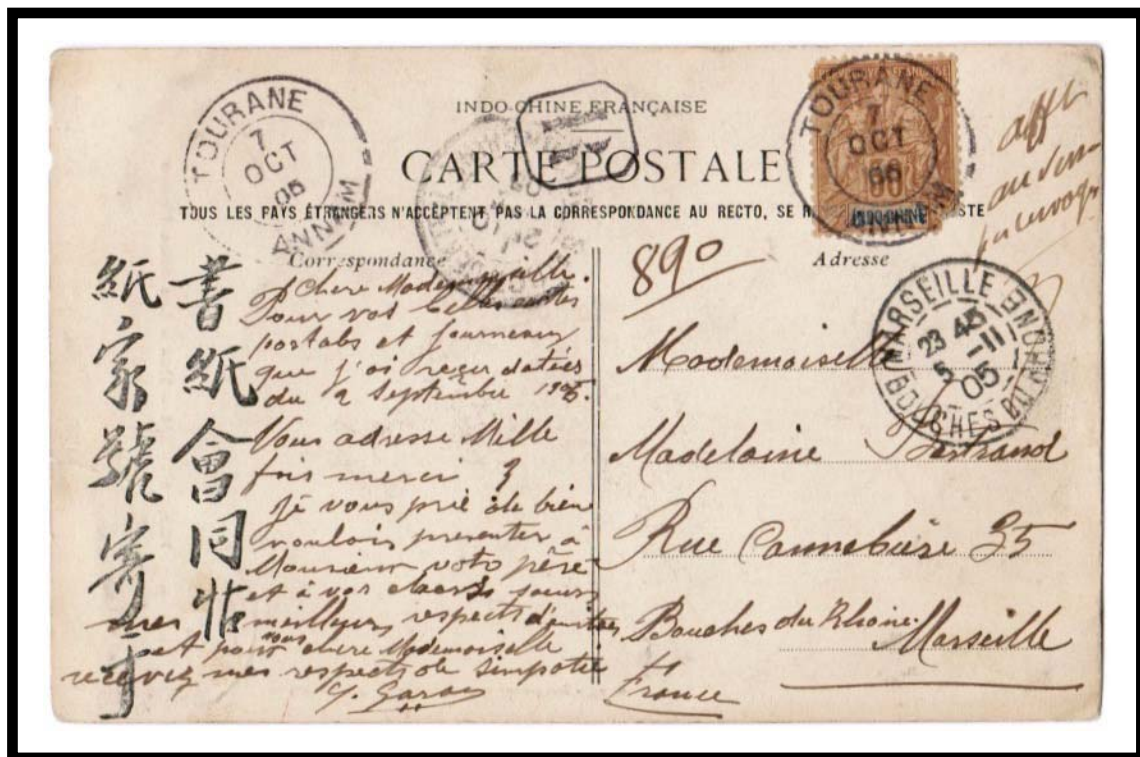 TOURANE
7
OCT
05
ANNAM
INDO-CHINE FRANÇAISE
CARTE POSTALE
T
TOUS LES PAYS ÉTRANGERS N'ACCEPTENT PAS LA CORRESPONDANCE AU RECTO, SE R STE
TOURANE
7
OCT
ANNAM
INDO-CHINE
affr
au verso
Correspondance
Chere Mademoiselle.
Pour vos belles cartes
postals et journeaux
que j'ai reçu datées
du 2 septembre 1905.
Vous adresse Mille
fois merci
Je vous prie de bien
vouloir presenter à
Monsieur votre père
et à vos soeurs
mes meilleurs respects d'amities
et pour vous chere Mademoiselle
recevez mes respects de simpatie
書紙會同
紙家號寄
890
Adresse
MARSEILLE
23 45
5 -11
05
BOUCHES DU RHONE
Mademoiselle
Madelaine Bertrand
Rue Cannebière 35
Bouches du Rhône.
Marseille
France